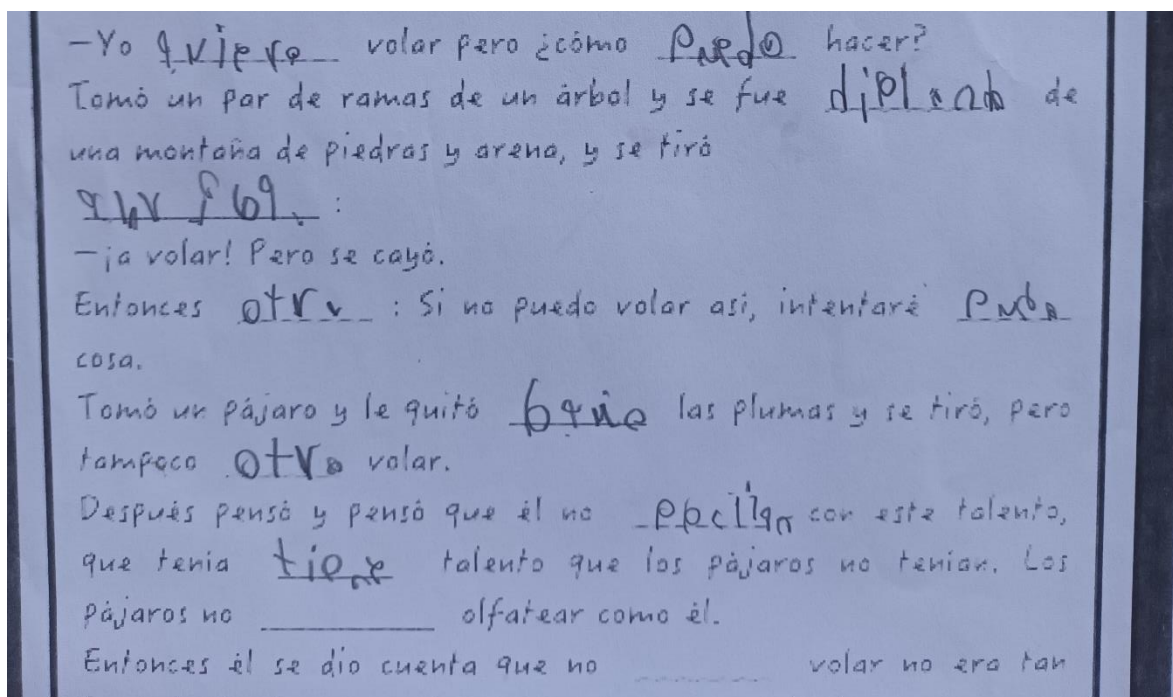 -Yo quiero volar pero ¿cómo Puedo hacer?
Tomó un par de ramas de un árbol y se fue de
una montaña de piedras y arena, y se tiró
:
-¡a volar! Pero se cayó.
Entonces otro : Si no puedo volar así, intentaré
cosa.
Tomó un pájaro y le quitó las plumas y se tiró, pero
tampoco otro volar.
Después pensó y pensó que él no con este talento,
que tenía tiene talento que los pájaros no tenían. Los
pájaros no ________ olfatear como él.
Entonces él se dio cuenta que no ________ volar no era tan